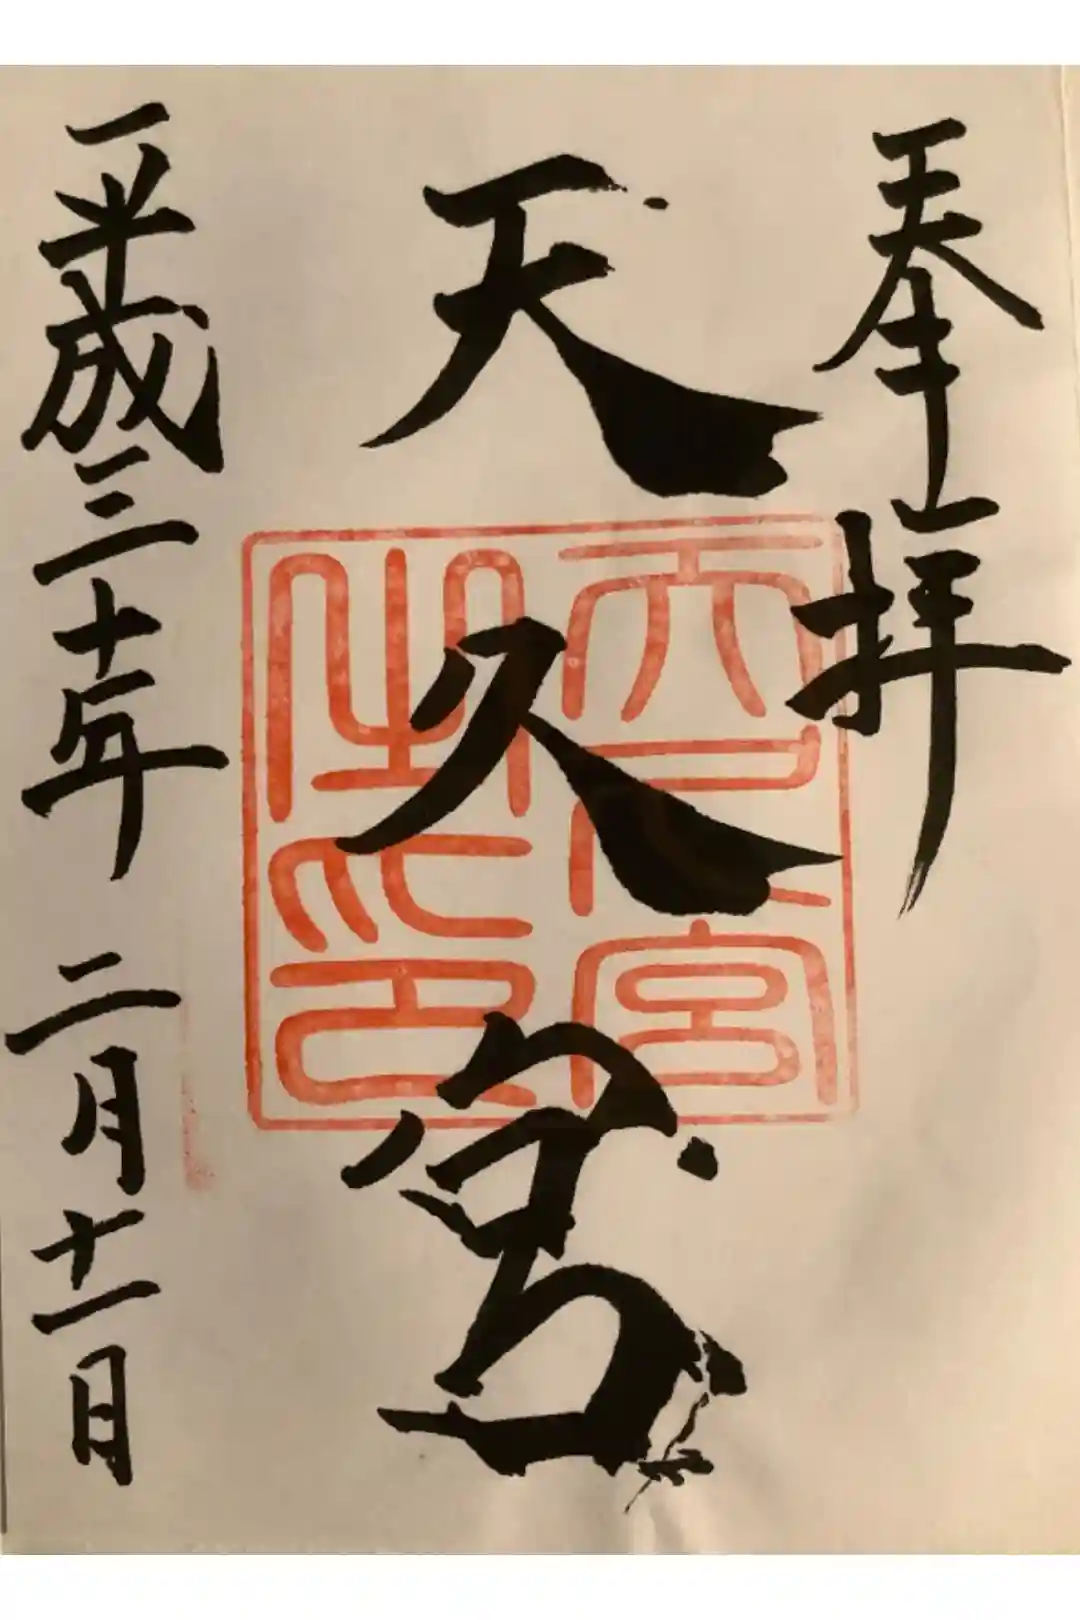 奉拝
天久宮
平成三十年 二月十一日
天久宮
之印